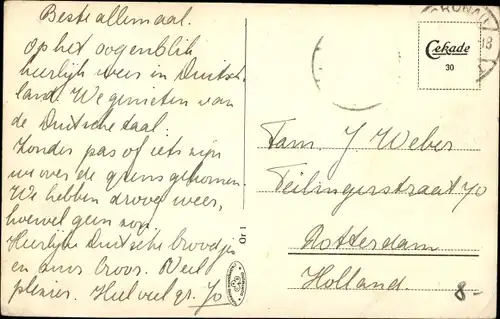 Beste allemaal.
Op het oogenblik
heerlijk weer in Duitsch-
land. We genieten van
de Duitsche taal.
Zonder pas of iets zijn
we over de grens gekomen.
We hebben droog weer,
hoewel geen zon.
Heerlijke Duitsche broodjes
en
plezier. Heel veel gr. Jo
GRONAU
-18
Cekade
30
Fam. J Weber
Teilingerstraat 70
Rotterdam
Holland.
Gr 1
8-